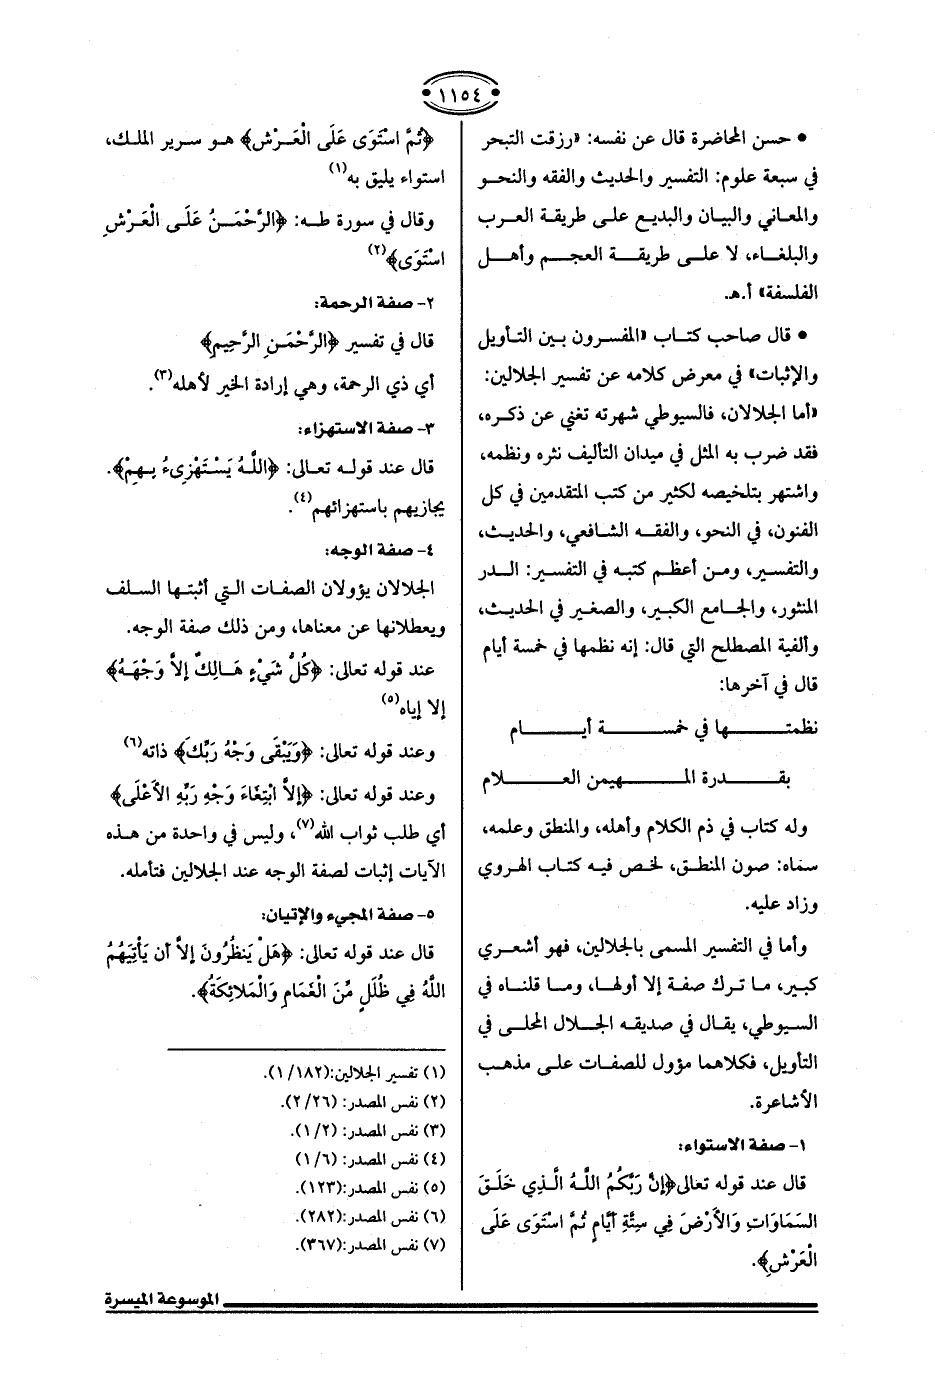 ١١٥٤
• حسن المحاضرة قال عن نفسه: «رزقت التبحر
في سبعة علوم: التفسير والحديث والفقه والنحو
والمعاني والبيان والبديع على طريقة العرب
والبلغاء، لا على طريقة العجم وأهل
الفلسفة» أ.هـ.
• قال صاحب كتاب «المفسرون بين التأويل
والإثبات» في معرض كلامه عن تفسير الجلالين:
«أما الجلالان، فالسيوطي شهرته تغني عن ذكره،
فقد ضرب به المثل في ميدان التأليف نثره ونظمه،
واشتهر بتلخيصه لكثير من كتب المتقدمين في كل
الفنون، في النحو، والفقه الشافعي، والحديث،
والتفسير، ومن أعظم كتبه في التفسير: الدر
المنثور، والجامع الكبير، والصغير في الحديث،
وألفية المصطلح التي قال: إنه نظمها في خمسة أيام
قال في آخرها:
نظمتها في خمسة أيام
بقدرة المهيمن العلام
وله كتاب في ذم الكلام وأهله، والمنطق وعلمه،
سماه: صون المنطق، لخص فيه كتاب الهروي
وزاد عليه.
وأما في التفسير المسمى بالجلالين، فهو أشعري
كبير، ما ترك صفة إلا أولها، وما قلناه في
السيوطي، يقال في صديقه الجلال المحلى في
التأويل، فكلاهما مؤول للصفات على مذهب
الأشاعرة.
١- صفة الاستواء:
قال عند قوله تعالى﴿إِنَّ رَبَّكُمُ اللَّهُ الَّذِي خَلَقَ
السَمَاوَاتِ وَالأَرْضَ فِي سِتَّةِ أَيَّامٍ ثُمَّ اسْتَوَى عَلَى
الْعَرْشِ﴾.
﴿ثُمَّ اسْتَوَى عَلَى الْعَرْش﴾ هو سرير الملك،
استواء يليق به(١)
وقال في سورة طه: ﴿الرَّحْمَنُ عَلَى الْعَرْشِ
اسْتَوَى﴾(٢)
٢- صفة الرحمة:
قال في تفسير ﴿الرَّحْمَنِ الرَّحِيمِ﴾
أي ذي الرحمة، وهي إرادة الخير لأهله(٣).
٣- صفة الاستهزاء:
قال عند قوله تعالى: ﴿اللَّهُ يَسْتَهْزِىءُ بِهِمْ﴾.
يجازيهم باستهزائهم(٤).
٤- صفة الوجه:
الجلالان يؤولان الصفات التي أثبتها السلف
ويعطلانها عن معناها، ومن ذلك صفة الوجه.
عند قوله تعالى: ﴿كُلُّ شَيْءٍ هَالِكٌ إلاَّ وَجْهَهُ﴾
إلا إياه(٥)
وعند قوله تعالى: ﴿وَيَبْقَى وَجْهُ رَبِّكَ﴾ ذاته(٦)
وعند قوله تعالى: ﴿إلاَّ ابْتِغَاءَ وَجْهِ رَبِّهِ الأَعْلَى﴾
أي طلب ثواب الله(٧)، وليس في واحدة من هذه
الآيات إثبات لصفة الوجه عند الجلالين فتأمله.
٥- صفة المجيء والإتيان:
قال عند قوله تعالى: ﴿هَلْ يَنظُرُونَ إلاَّ أن يَأْتِيَهُمُ
اللَّهُ فِي ظُلَلٍ مِّنَ الْغَمَامِ وَالْمَلائِكَةُ﴾.
(١) تفسير الجلالين:(١/١٨٢).
(٢) نفس المصدر: (٢/٢٦).
(٣) نفس المصدر: (١/٢).
(٤) نفس المصدر: (١/٦)
(٥) نفس المصدر:(١٢٣).
(٦) نفس المصدر: (٢٨٢).
(٧) نفس المصدر:(٣٦٧).
الموسوعة الميسرة